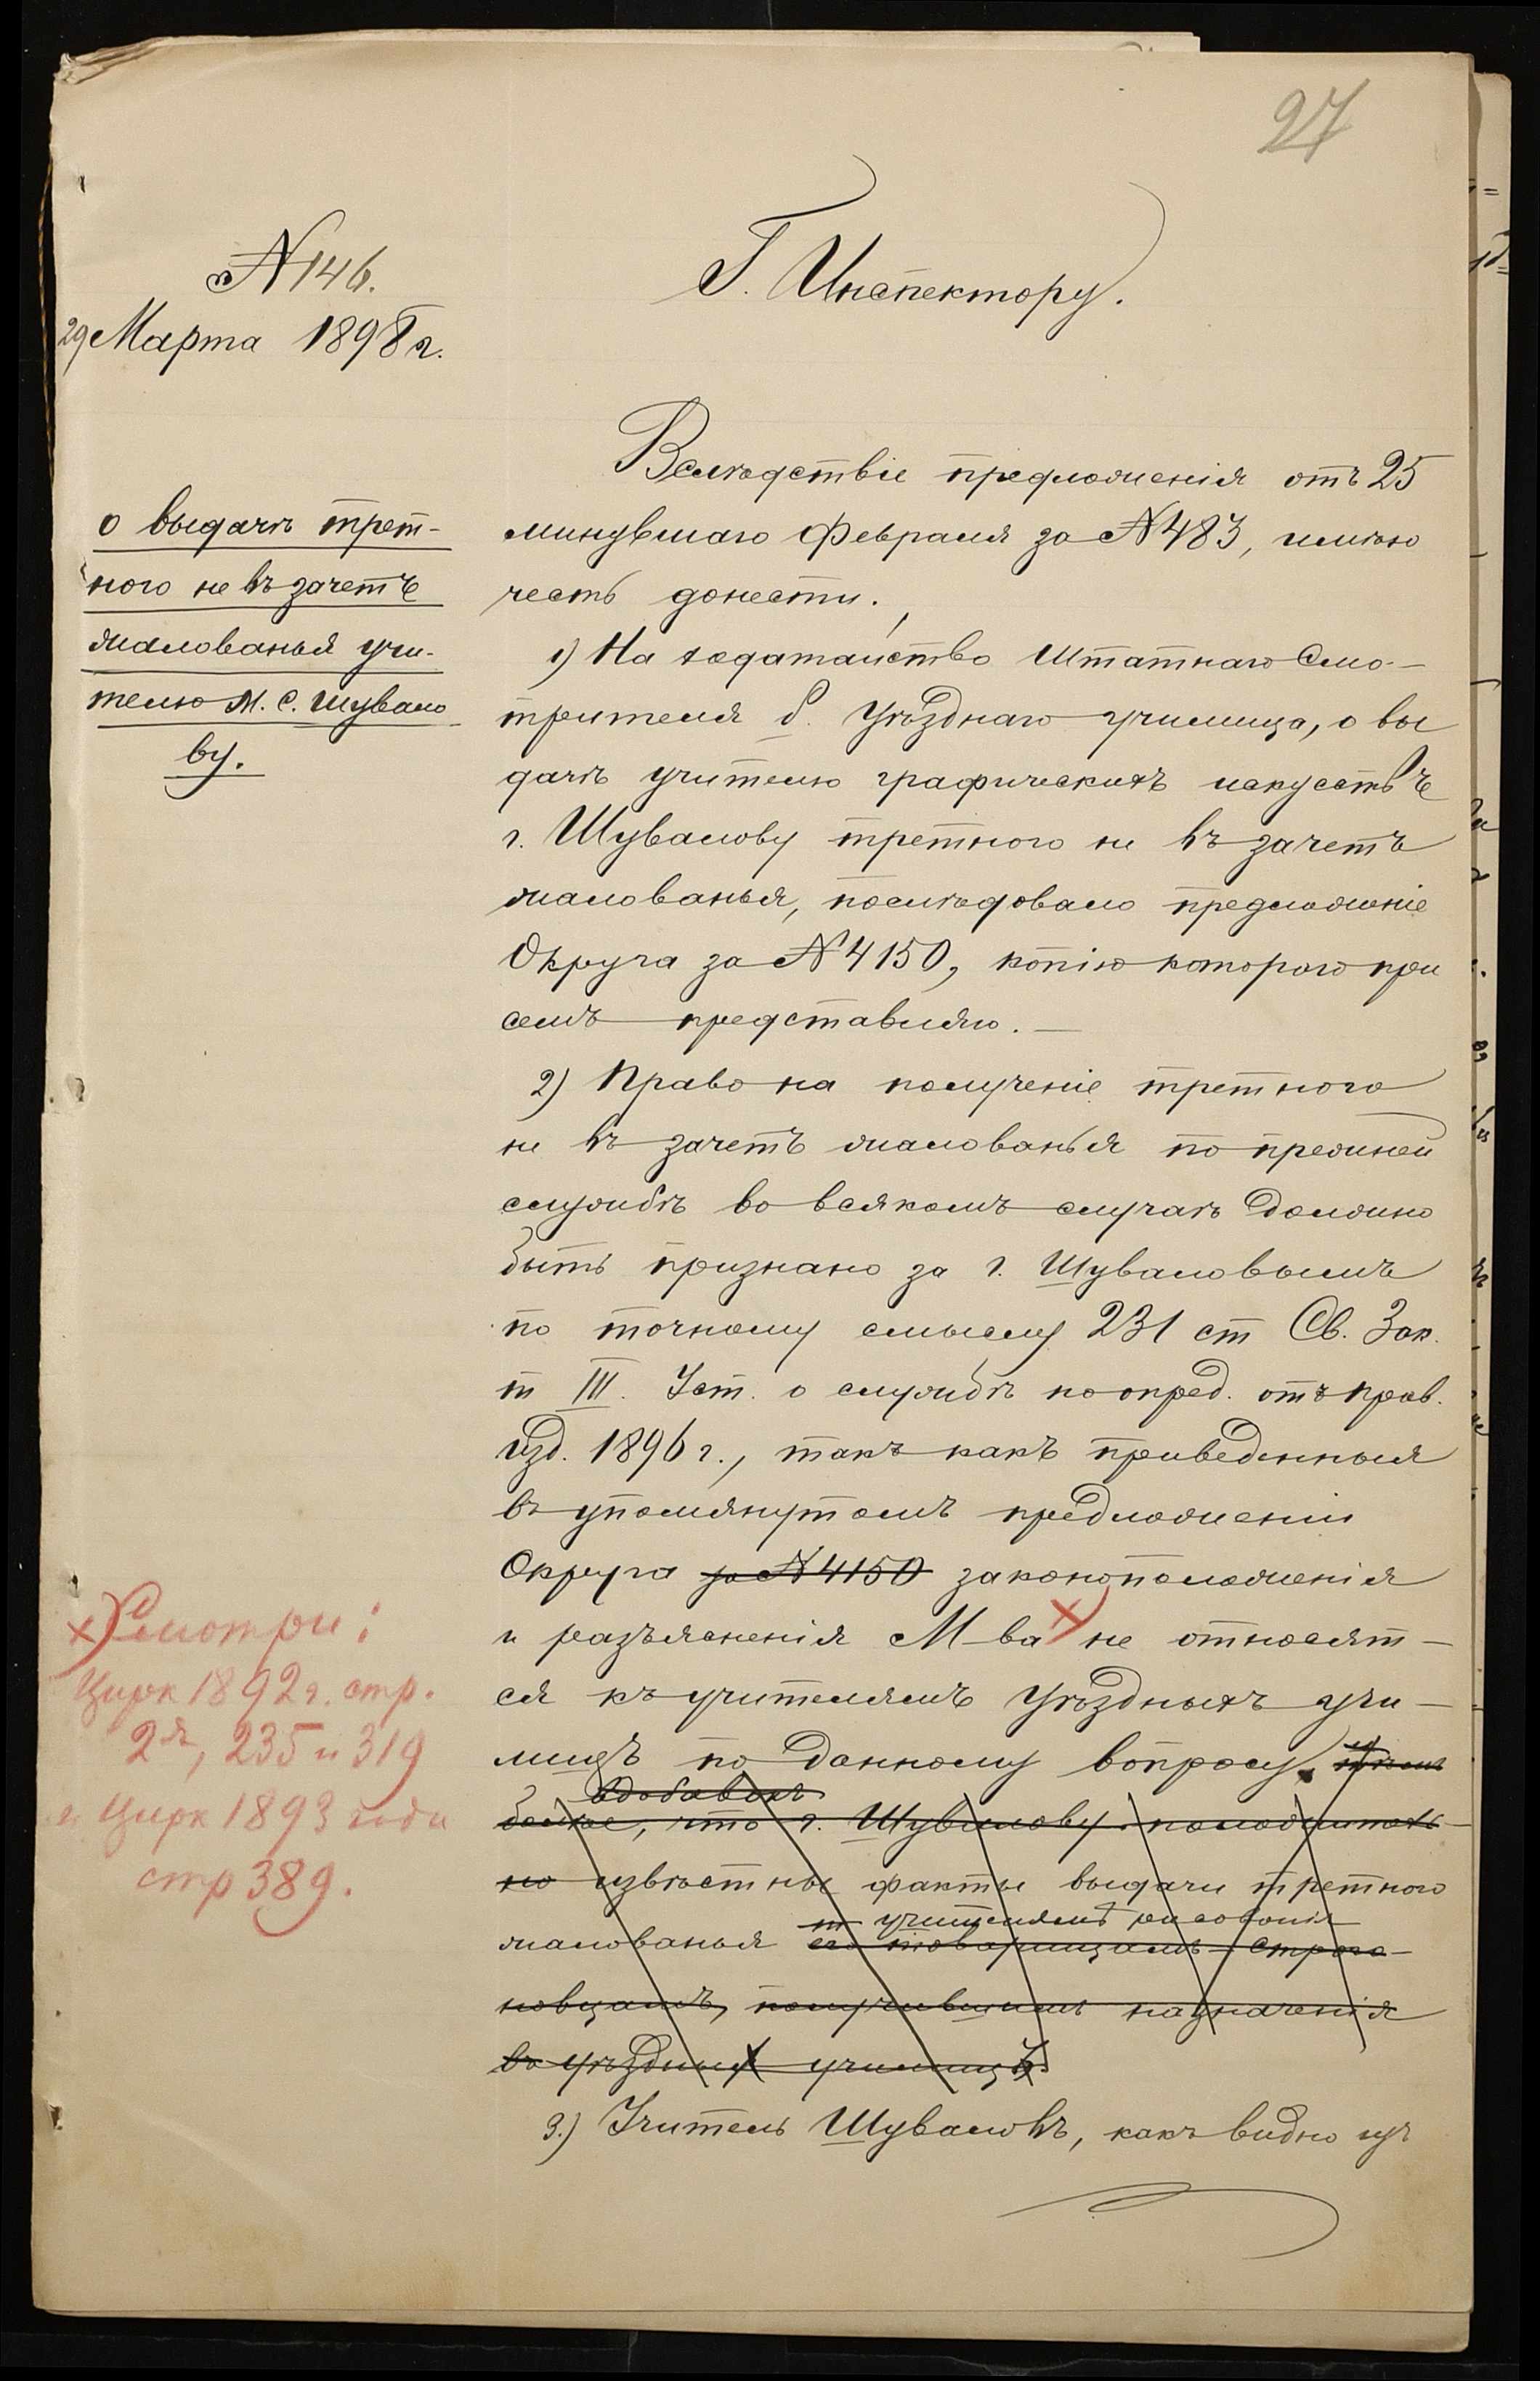 27
№ 146.
29 Марта 1898 г.
Г. Инспектору.
о выдачѣ трет-
ного не въ зачетъ
жалованья учи-
телю М. С. Шувало
ву.
Вслѣдствіе предложенія отъ 25
минувшаго Февраля за № 483, имѣю
честь донести.
1) На ходатайство Штатнаго Смо-
трителя б. Уѣзднаго училища, о вы
дачѣ учителю графическихъ искусствъ
г. Шувалову третного не въ зачетъ
жалованья, послѣдовало предложеніе
Округа за № 4150, копію которого при
семъ представляю.
2) Право на полученіе третного
не въ зачетъ жалованья по прежней
службѣ во всякомъ случаѣ должно
быть признано за г. Шуваловымъ
по точному смыслу 231 ст Св. Зак.
т III. Уст. о службѣ по опред. отъ прав.
изд. 1896 г., такъ какъ приведенныя
въ упомянутомъ предложеніи
Округа за № 4150 законоположенія
и разъясненія М-ва х) не относят-
ся къ учителямъ Уѣздныхъ учи-
лищъ по данному вопросу.
вдобавокъ
более, что г. Шувалову положитель-
но извѣстны факты выдачи третного
учителямъ рисованія
жалованья его товарищамъ Строго-
новцамъ, получившимъ назначенія
въ уѣздныя училища.
3.) Учитель Шуваловъ, какъ видно изъ
х) Смотри:
Цирк 1892 г. стр.
2я, 235 и 319
и Цирк 1893 года
стр 389.